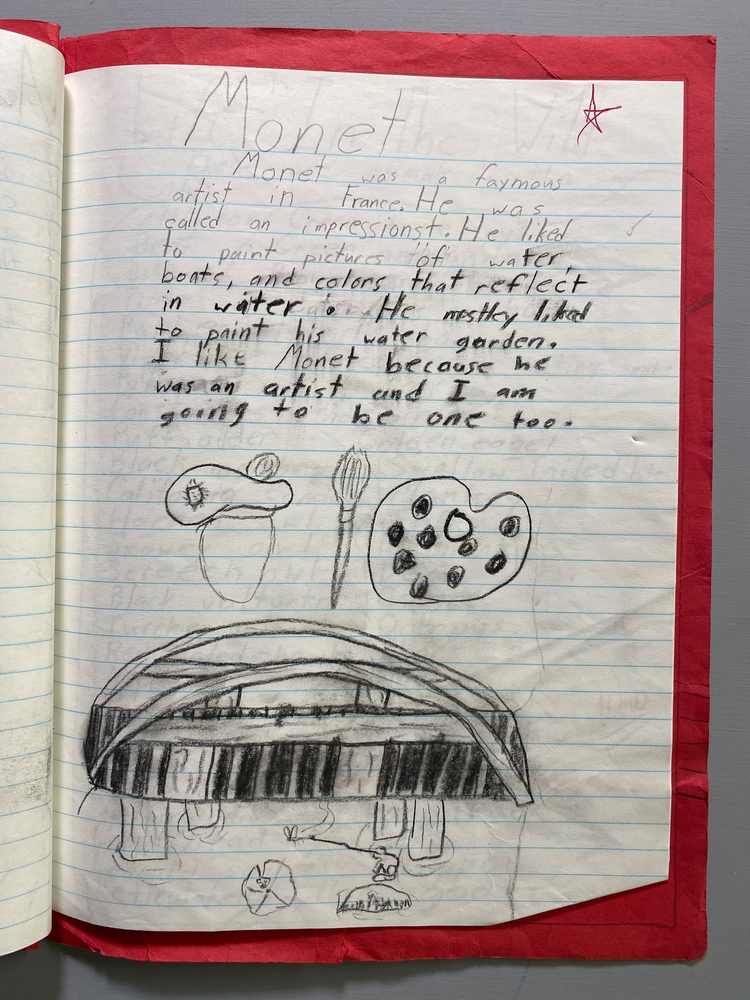 Monet
Monet was a faymous
artist in France. He was
called an impressionst. He liked
to paint pictures of water,
boats, and colors that reflect
in water. He mostley liked
to paint his water garden.
I like Monet because he
was an artist and I am
going to be one too.